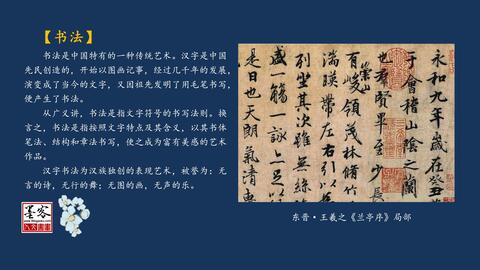 【书法】
书法是中国特有的一种传统艺术。汉字是中国
先民创造的，开始以图画记事，经过几千年的发展，
演变成了当今的文字，又因祖先发明了用毛笔书写，
便产生了书法。
从广义讲，书法是指文字符号的书写法则。换
言之，书法是指按照文字特点及其含义，以其书体
笔法、结构和章法书写，使之成为富有美感的艺术
作品。
汉字书法为汉族独创的表现艺术，被誉为：无
言的诗，无行的舞；无图的画，无声的乐。
墨客
永和九年歲在癸丑
于會稽山陰之蘭
也羣賢畢至少長
崇山
有峻領茂林脩竹
湍暎帶左右引以
列坐其次雖無絲
盛一觴一詠亦足以
是日也天朗氣清
东晋·王羲之《兰亭序》局部